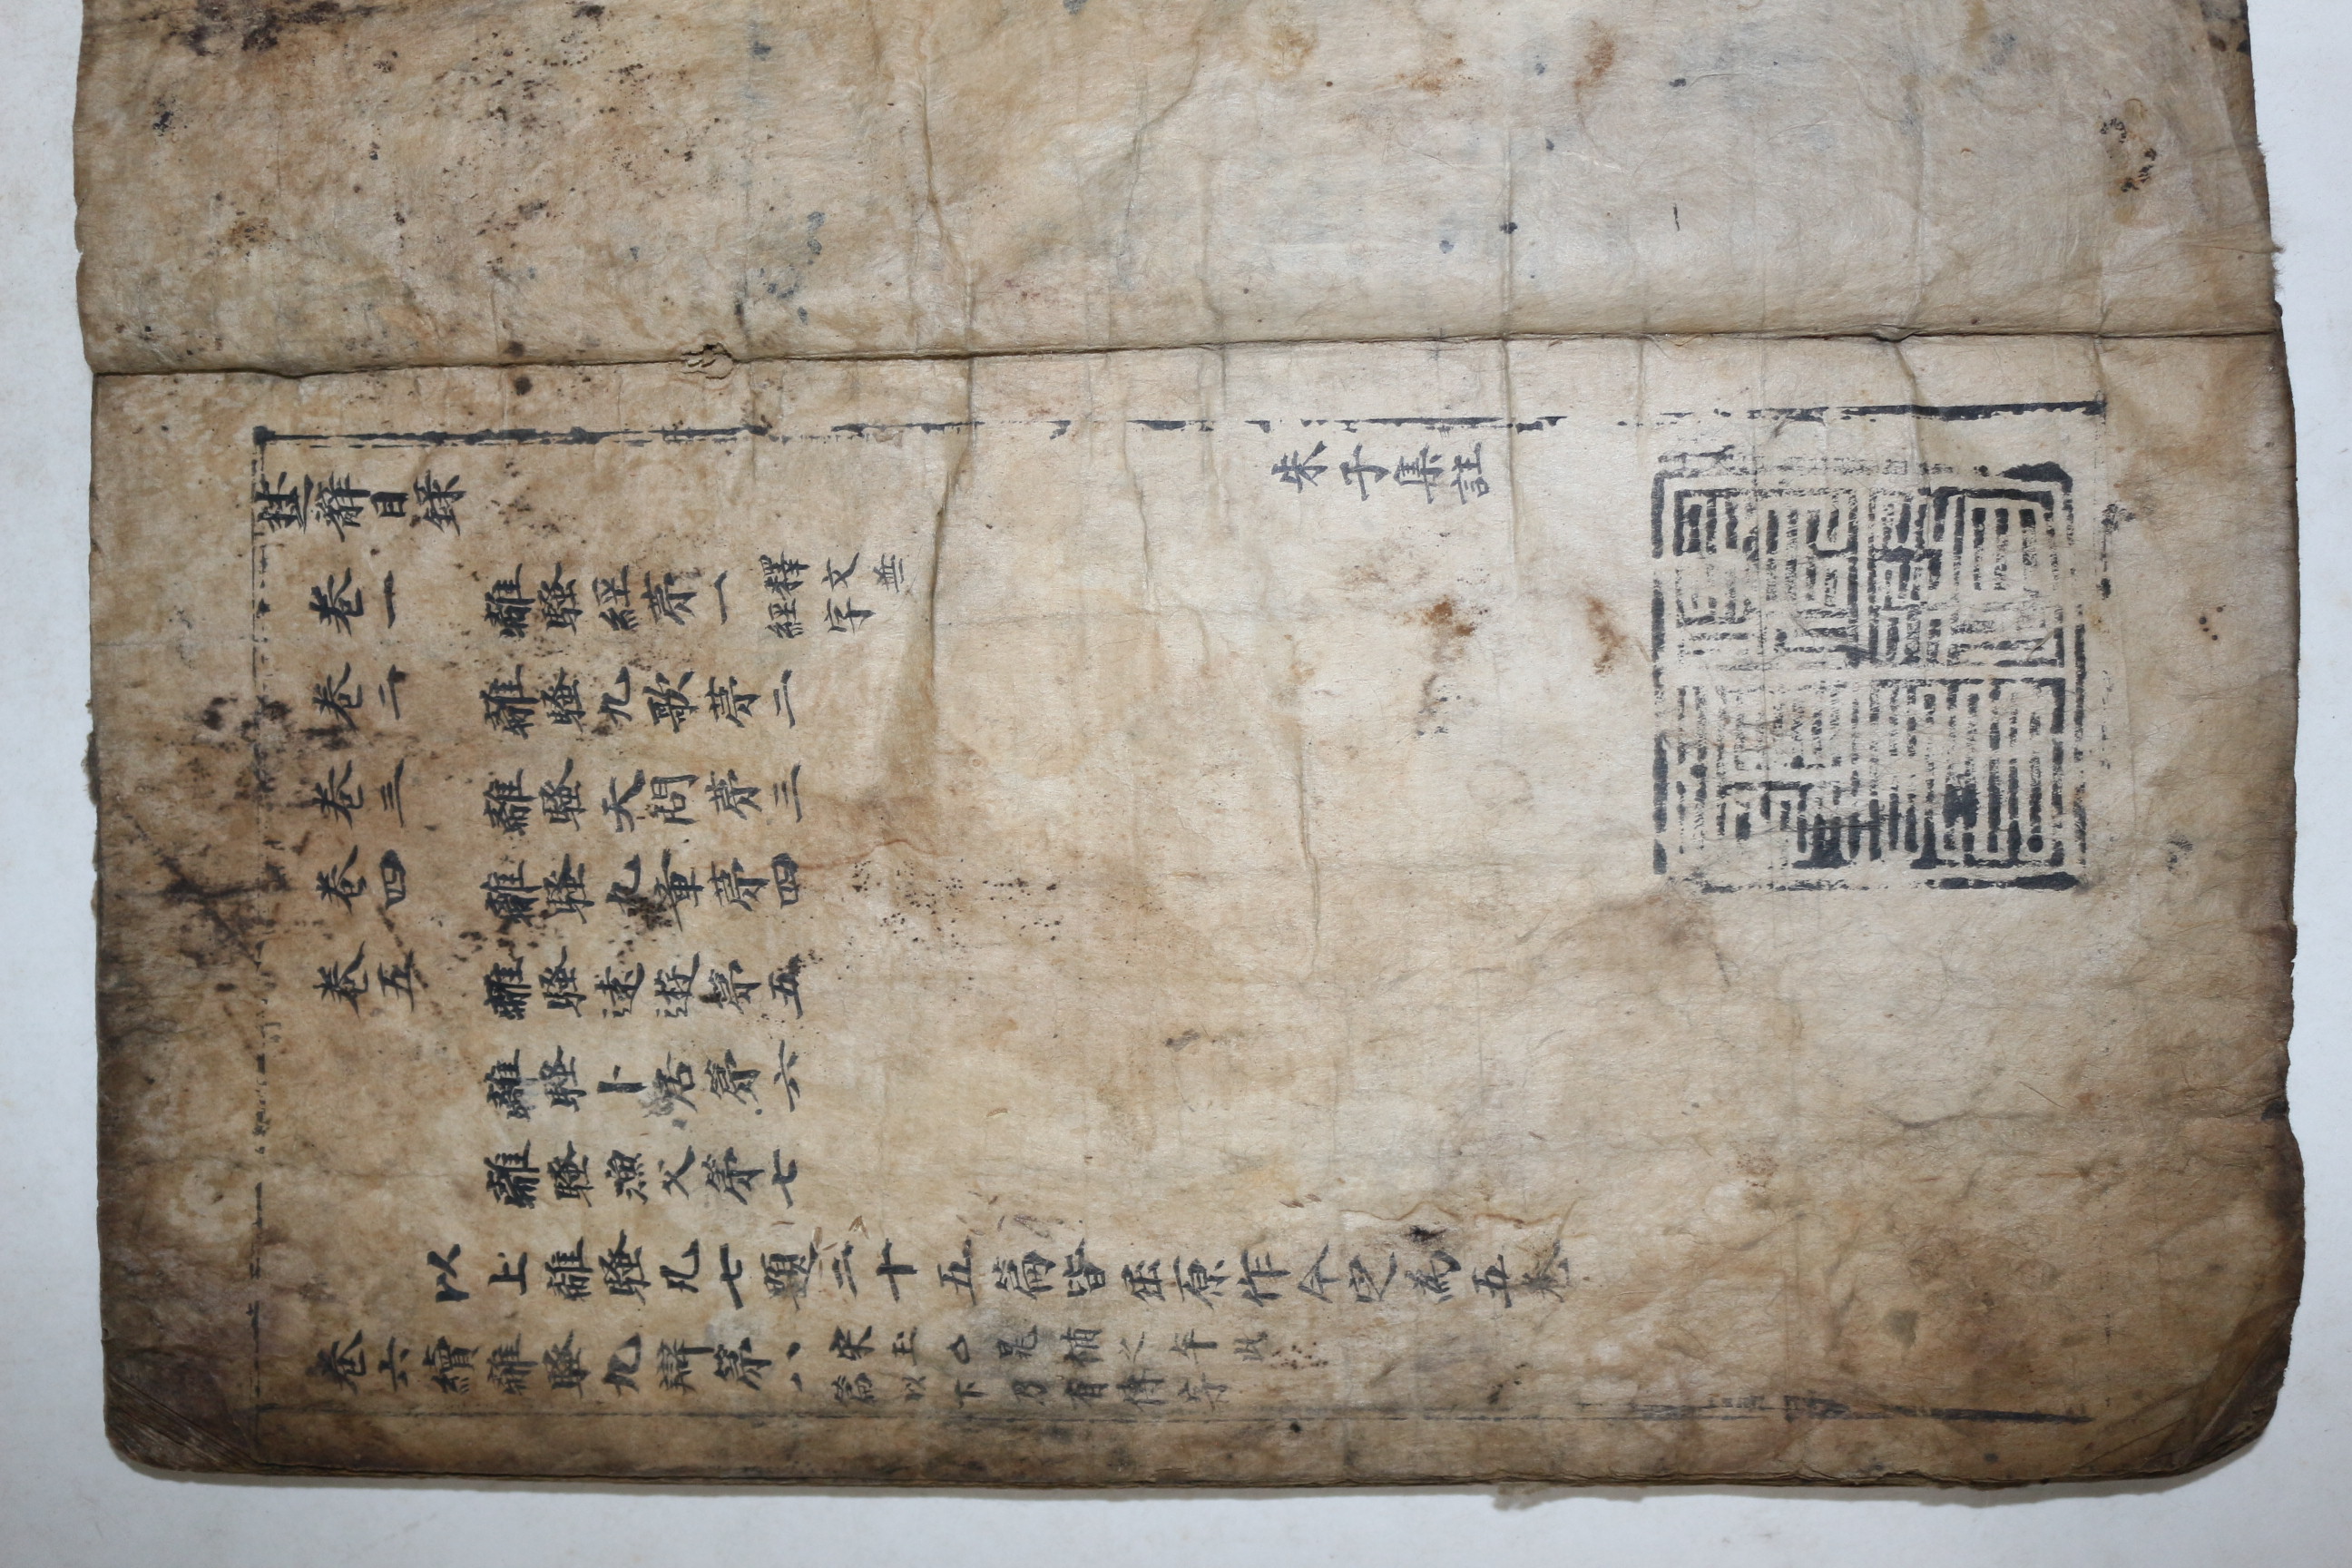 楚辭目錄 朱子集註
卷一 離騷經第一 釋文無經字
卷二 離騷九歌第二
卷三 離騷天問第三
卷四 離騷九章第四
卷五 離騷遠遊第五
離騷卜居第六
離騷漁父第七
以上離騷凡七題二十五篇皆屈原作今定為五卷
卷六續離騷九辯第八 宋玉○晁補之本此篇以下乃有傳字